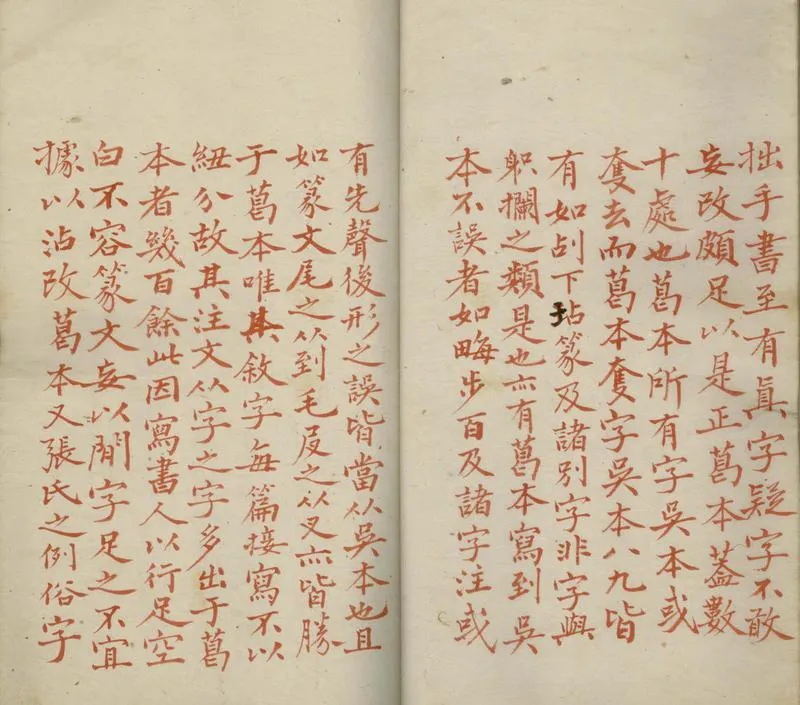 拙手書至有眞字疑字不敢
妄改頗足以是正葛本蓋數
十處也葛本所有字吳本或
奪去而葛本奪字吳本八九皆
有如刮下玷篆及諸別字非字與
躬攔之類是也亦有葛本寫到吳
本不誤者如畮步百及諸字注或
有先聲後形之誤皆當从吳本也且
如篆文尾之从到毛𠬝之从又亦皆勝
于葛本唯其敘字每篇接寫不以
紐分故其注文从字之字多出于葛
本者幾百餘此因寫書人以行足空
白不容篆文妄以閒字足之不宜
據以沾改葛本又張氏之例俗字